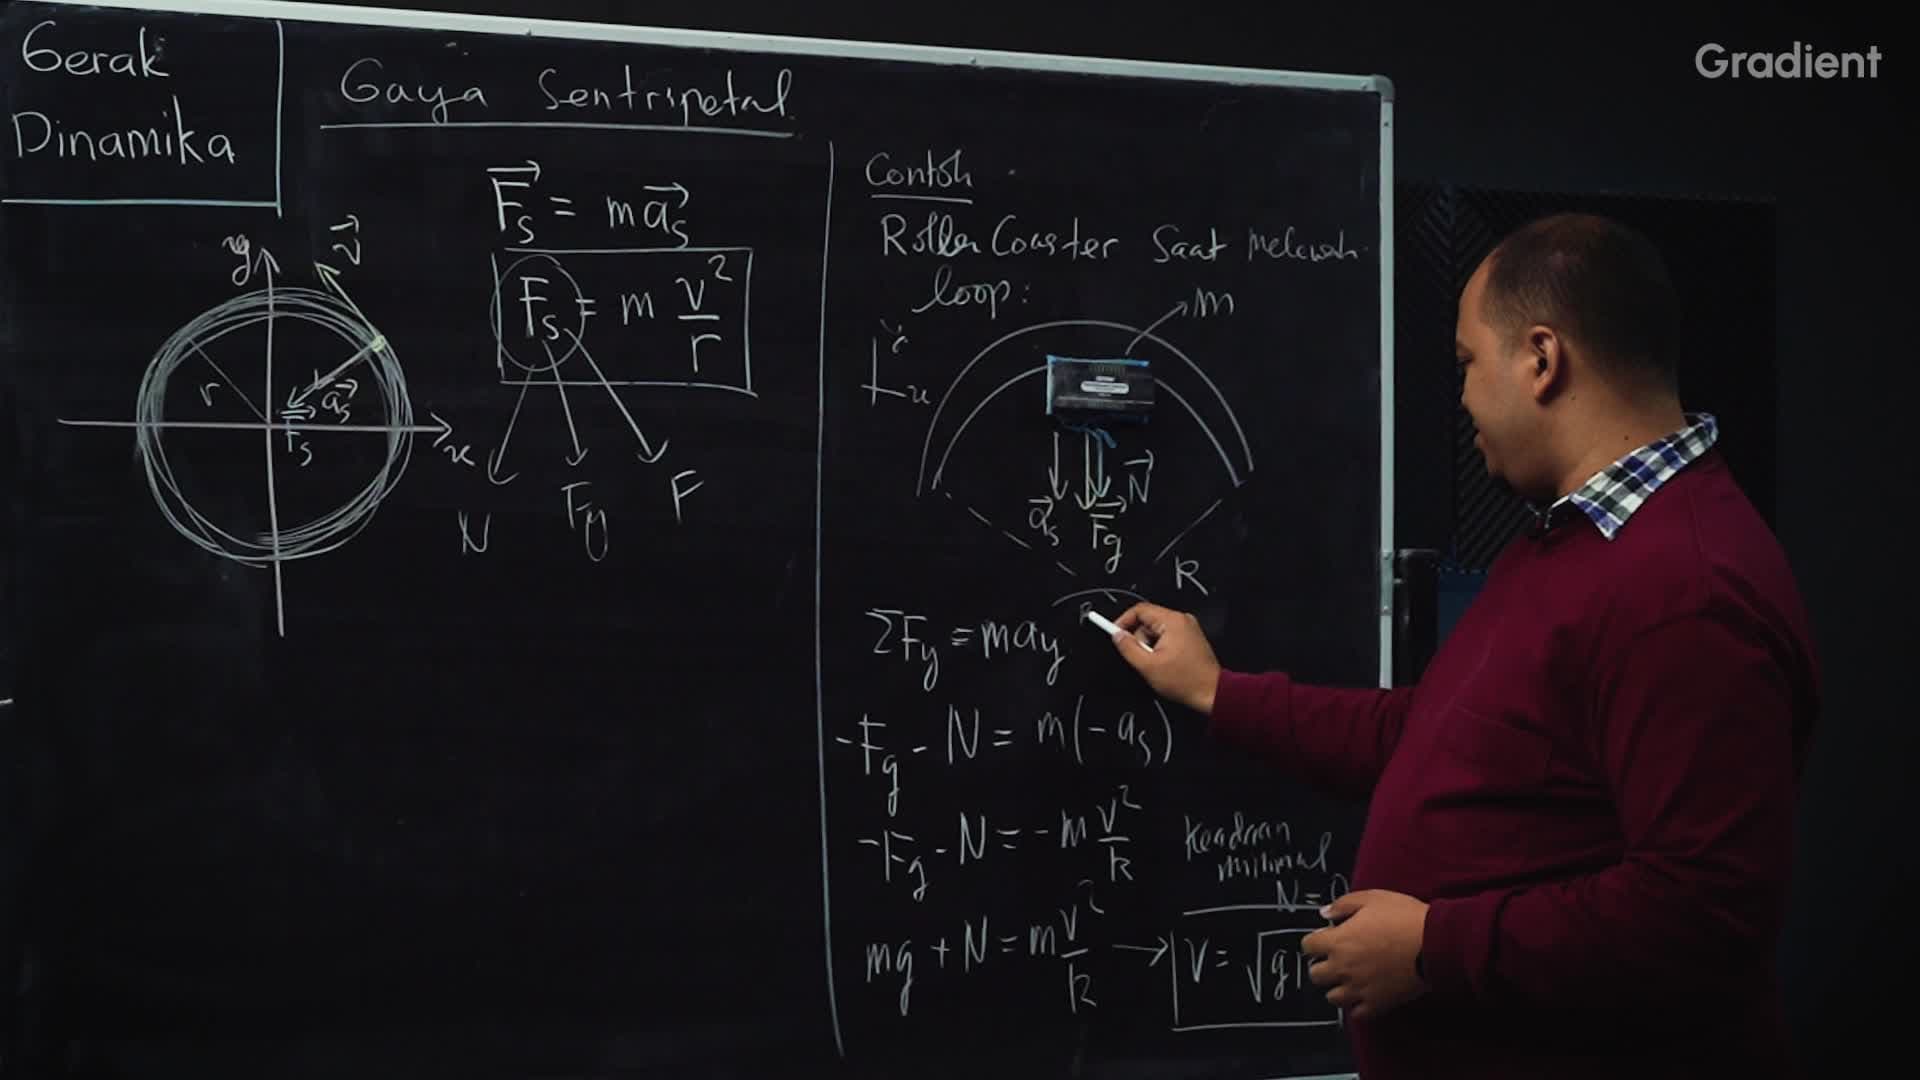 Gradient
Gerak
Dinamika
Gaya Sentripetal
F⃗s = ma⃗s
Fs = m v²/r
N
Fg
F
y
v⃗
r
a⃗s
F⃗s
x
Contoh
Roller Coaster Saat melewati
loop:
m
N⃗
a⃗s
F⃗g
R
ΣFy = may
-Fg - N = m(-as)
-Fg - N = -m v²/R
Keadaan
minimal
N = 0
mg + N = m v²/R → v = √g